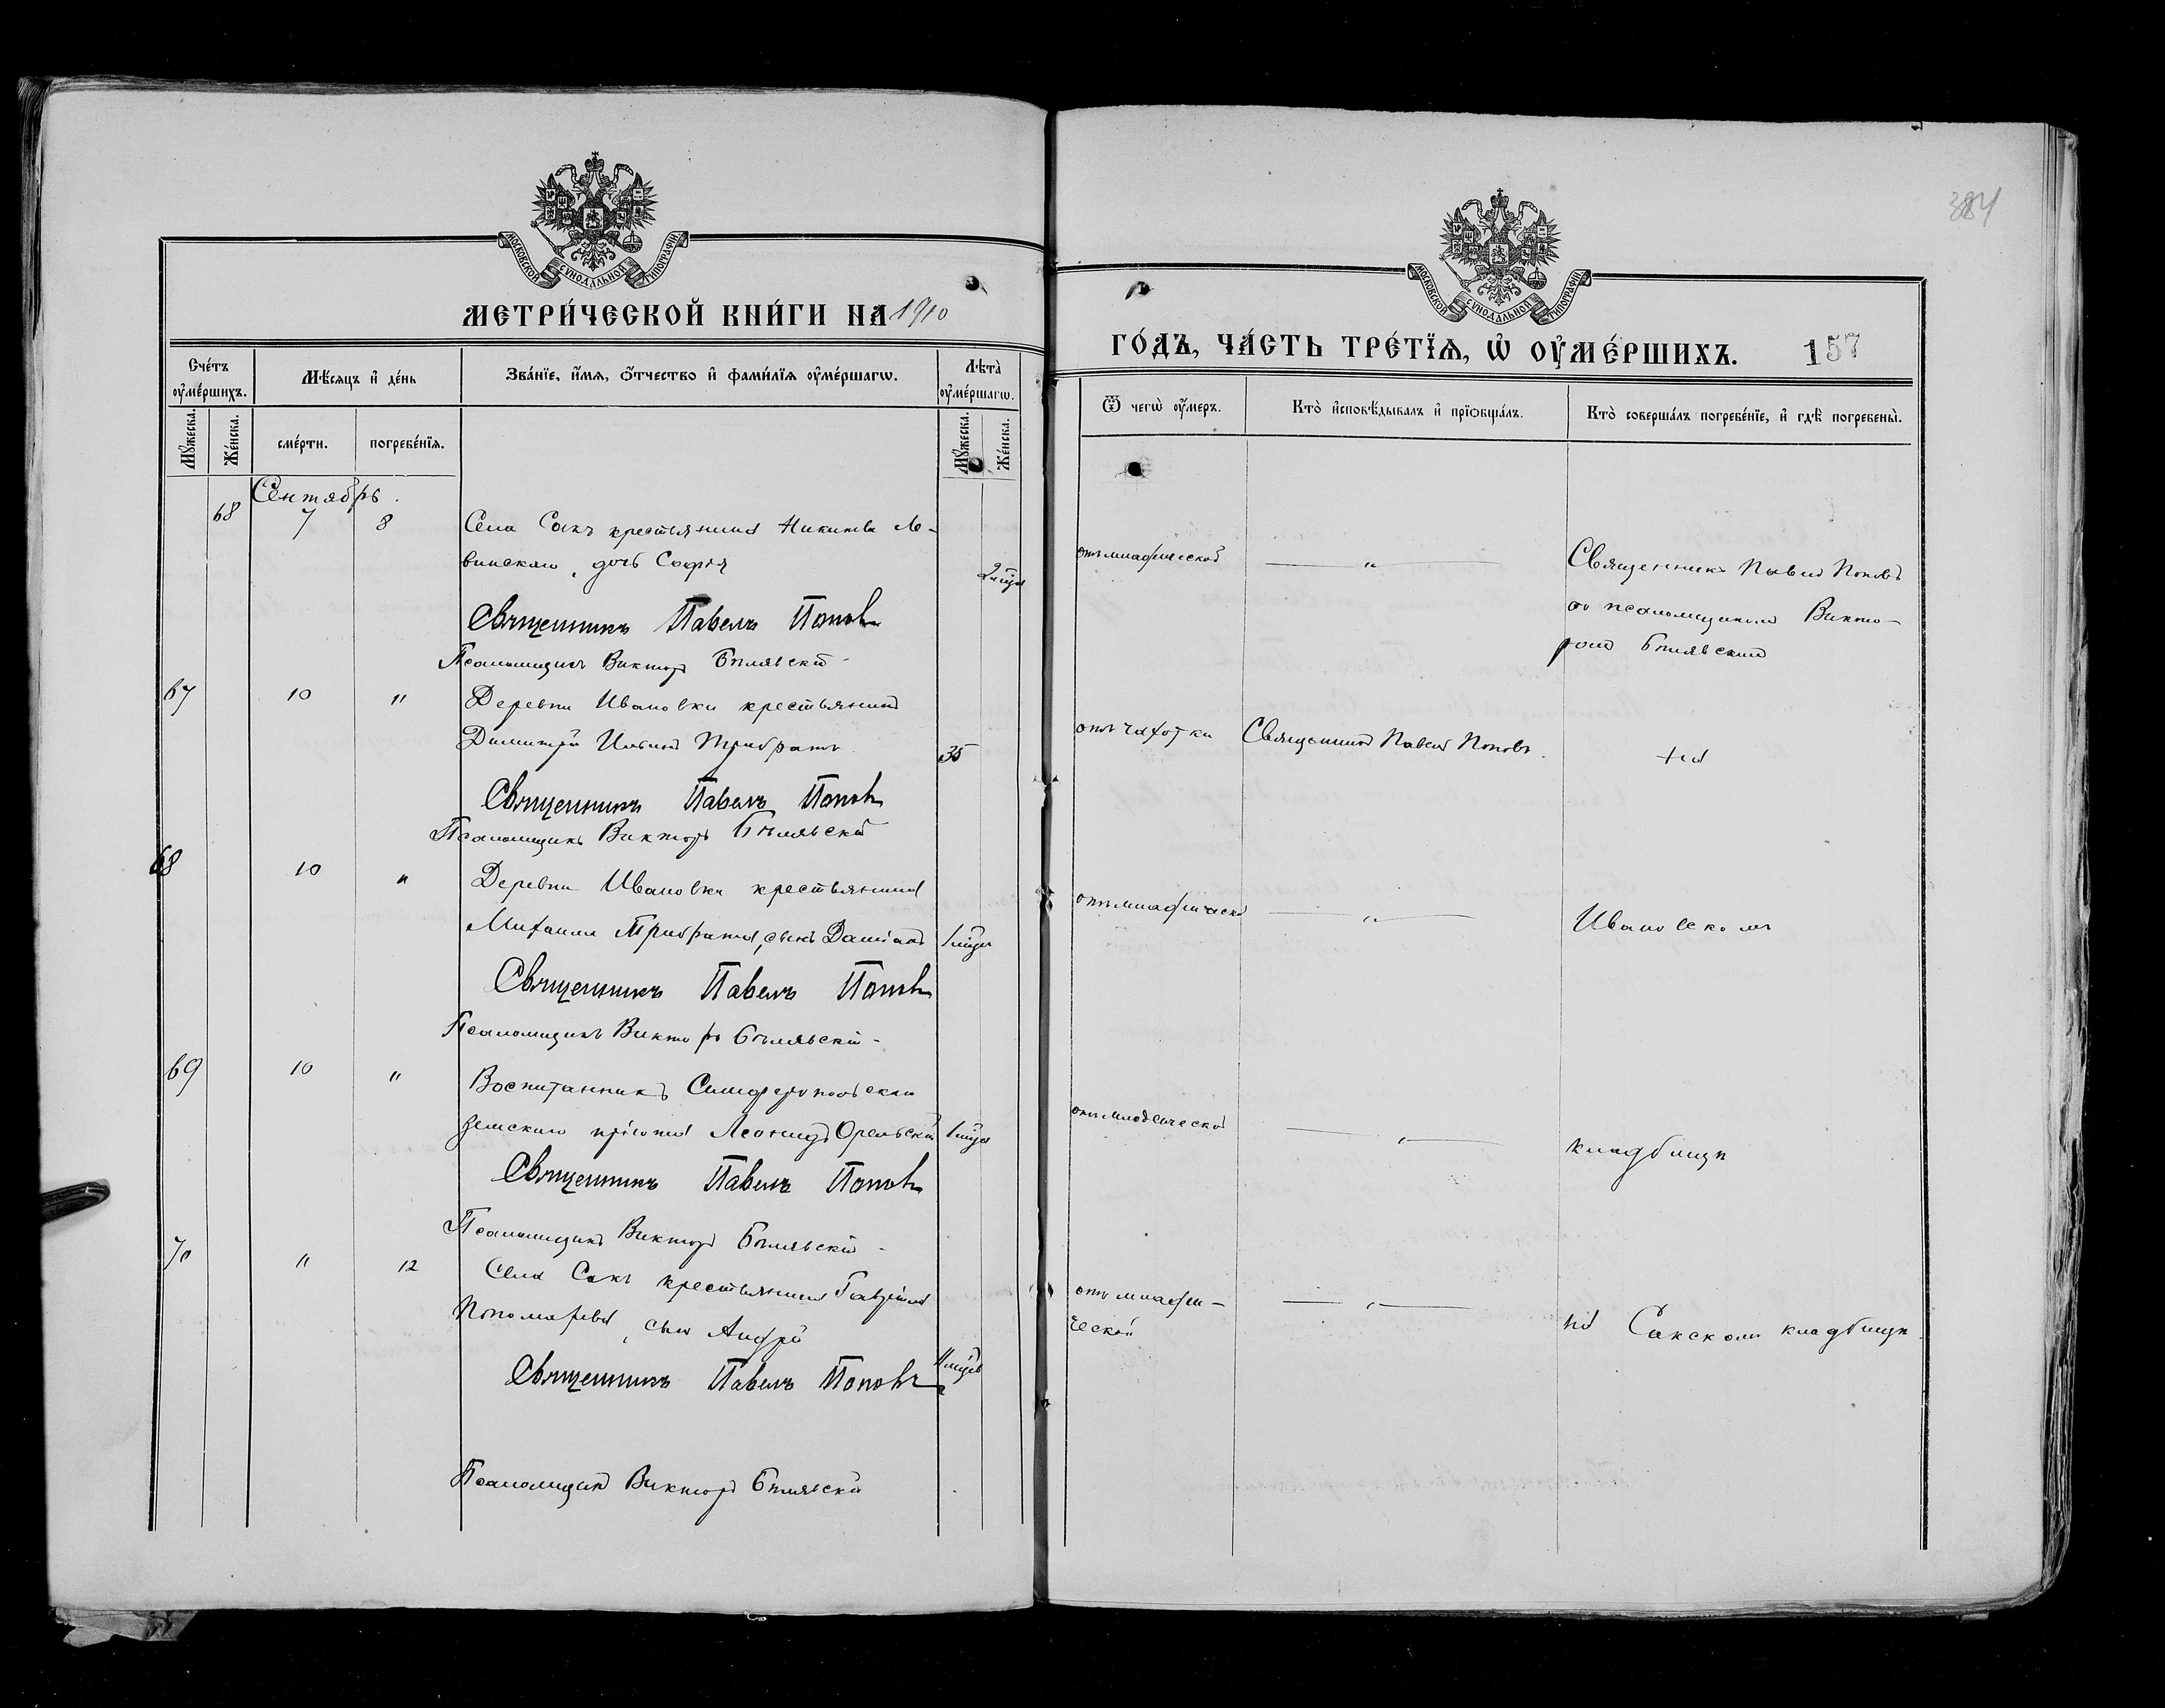 384
МОСКОВСКОЙ СУНОДАЛЬНОЙ ТИПОГРАФІИ
МЕТРИ́ЧЕСКОЙ КНИ́ГИ НА 1910
Сче́тъ оу҆ме́ршихъ.
Мѣ́сяцъ и҆ де́нь
Зва́нїе, и҆́мя, ѻ҆́тчество и҆ фами́лїя оу҆ме́ршагѡ.
Лѣта̀ оу҆ме́ршагѡ.
Мꙋ́жеска.
Же́нска.
сме́рти.
погребе́нїя.
Мꙋ́жеска.
Же́нска.
Сентябрь.
68 7 8 Села Сакъ крестьянина Никиты Ле-
винскаго, дочь Софія
Священникъ Павелъ Поповъ
Псаломщикъ Викторъ Бѣлявскій
67 10 " Деревни Ивановки крестьянинъ
Димитрій 35
Священникъ Павелъ Поповъ
Псаломщикъ Викторъ Бѣлявскій
68 10 " Деревни Ивановки крестьянина
Михаила сынъ Даміанъ
Священникъ Павелъ Поповъ
Псаломщикъ Викторъ Бѣлявскій
69 10 " Воспитанникъ Симферопольскаго
земскаго пріюта Леонидъ Орельскій
Священникъ Павелъ Поповъ
Псаломщикъ Викторъ Бѣлявскій
70 " 12 Села Сакъ крестьянина Гавріила
Пономарева, сынъ Андрей
Священникъ Павелъ Поповъ
Псаломщикъ Викторъ Бѣлявскій
МОСКОВСКОЙ СУНОДАЛЬНОЙ ТИПОГРАФІИ
ГО́ДЪ, ЧА́СТЬ ТРЕ́ТЇЯ, Ѡ҆ ОУ҆МЕ́РШИХЪ. 157
Ѿ чегѡ̀ оу҆́меръ.
Кто̀ и҆сповѣ́дывалъ и҆ прїѻбща́лъ.
Кто̀ соверша́лъ погребе́нїе, и҆ гдѣ̀ погребены̀.
отъ младенческой " Священникъ Павелъ Поповъ
съ псаломщикомъ Викто-
ромъ Бѣлявскимъ
отъ чахотки Священникъ Павелъ Поповъ. на
отъ младенческой " Ивановскомъ
отъ младенческой " кладбищѣ
отъ младен-
ческой " на Сакскомъ кладбищѣ